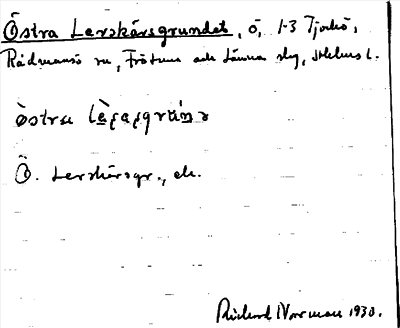 Östra Lerskärsgrundet, ö, 1-3 Tjockö,
Rådmansö sn, Frötuna och Länna slg, Sthlms l.
òstra
Ö. Lerskärsgr., ek.
Rickard Norrman 1930.